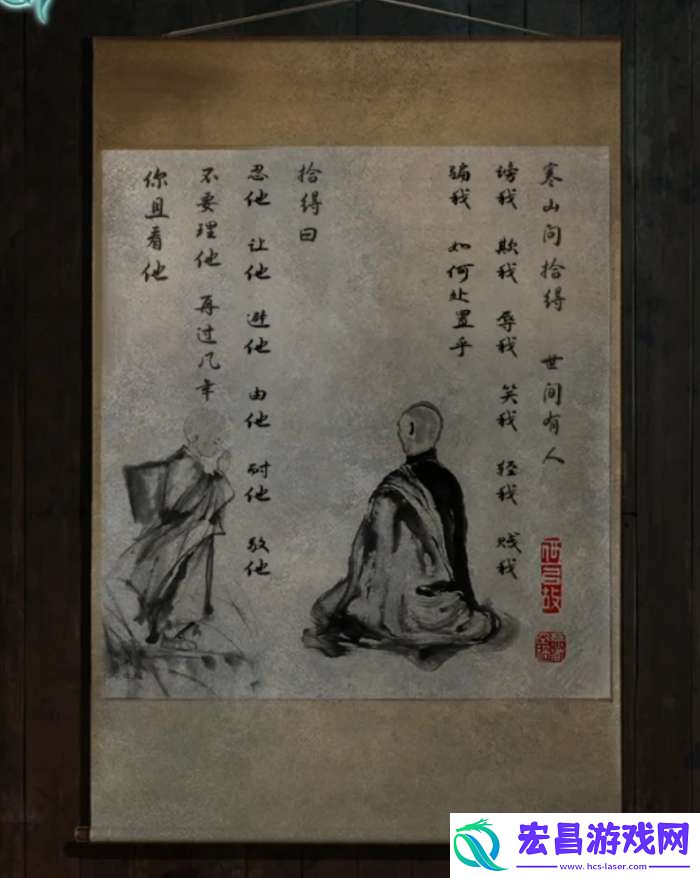 寒山问拾得 世间有人
谤我 欺我 辱我 笑我 轻我 贱我
骗我 如何处置乎
拾得曰
忍他 让他 避他 由他 耐他 敬他
不要理他 再过几年
你且看他
宏昌游戏网
www.hcs-laser.com